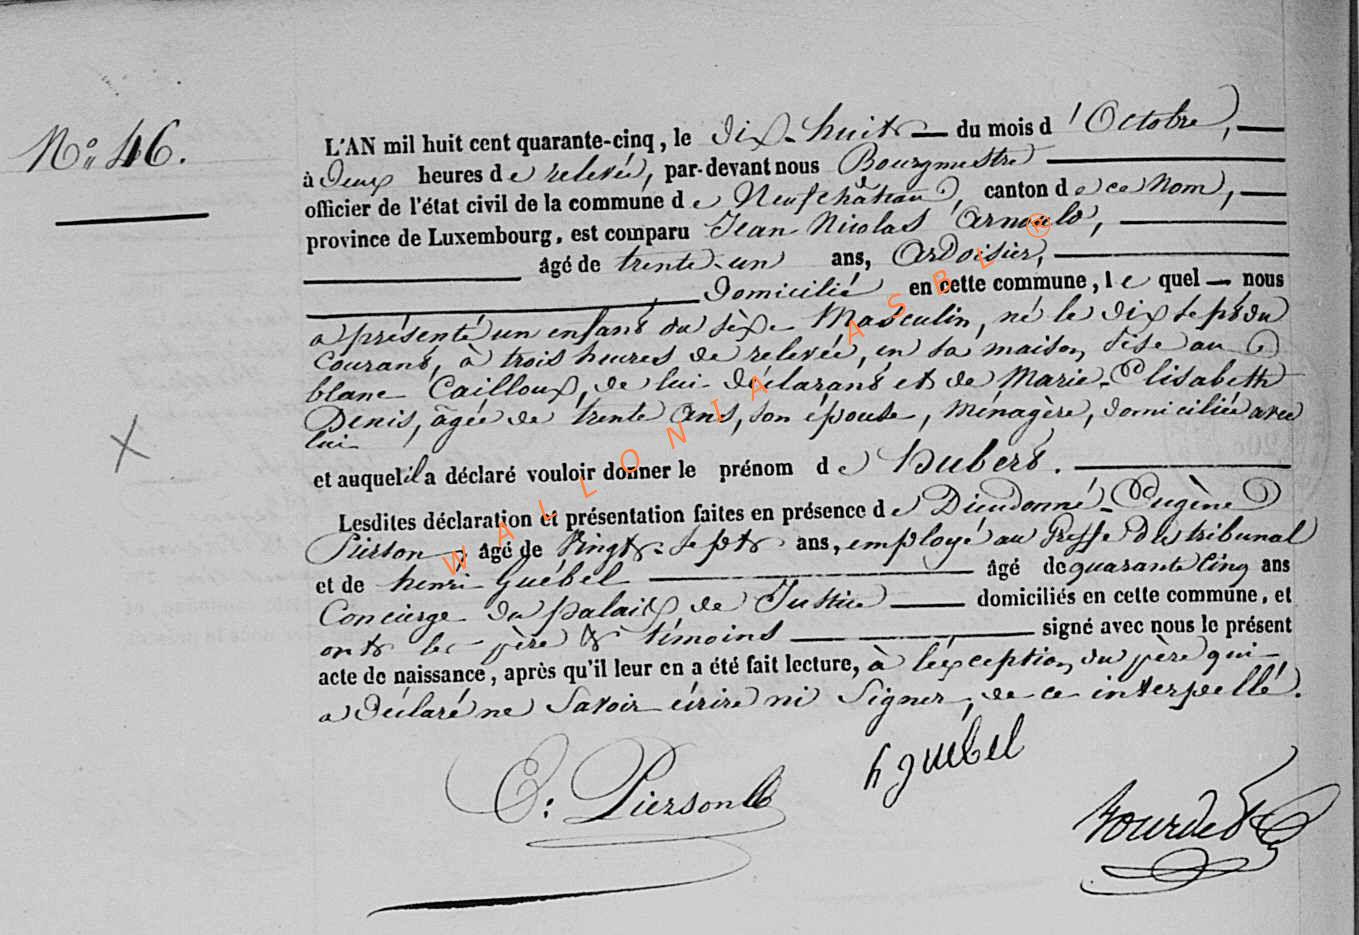 N° 46.
L'AN mil huit cent quarante-cinq, le dix-huit du mois d'Octobre,
à Deux heures de relevée, par-devant nous Bourgmestre
officier de l'état civil de la commune de Neufchâteau, canton de ce nom,
province de Luxembourg, est comparu Jean Nicolas Arnould,
âgé de trente-un ans, Ardoisier,
Domicilié en cette commune, lequel nous
a présenté un enfant du sèxe Masculin, né le dix sept du
courant, à trois heures de relevée, en sa maison, sise au
blanc Cailloux, de lui déclarant et de Marie-Elisabeth
Denis, âgée de trente ans, son épouse, ménagère, domiciliée avec
lui
et auquel il a déclaré vouloir donner le prénom de Hubert.
Lesdites déclaration et présentation faites en présence de Dieudonné-Eugène
Pierson, âgé de Vingt-Sept ans, employé au Greffe du tribunal
et de henri Guébel âgé de quarante Cinq ans
Concierge du palais de Justice domiciliés en cette commune, et
ont les père & témoins signé avec nous le présent
acte de naissance, après qu'il leur en a été fait lecture, à l'exception du père qui
a déclaré ne Savoir écrire ni Signer, de ce interpellé.
E. Pierson
h guébel
WALLONIA ASBL ®